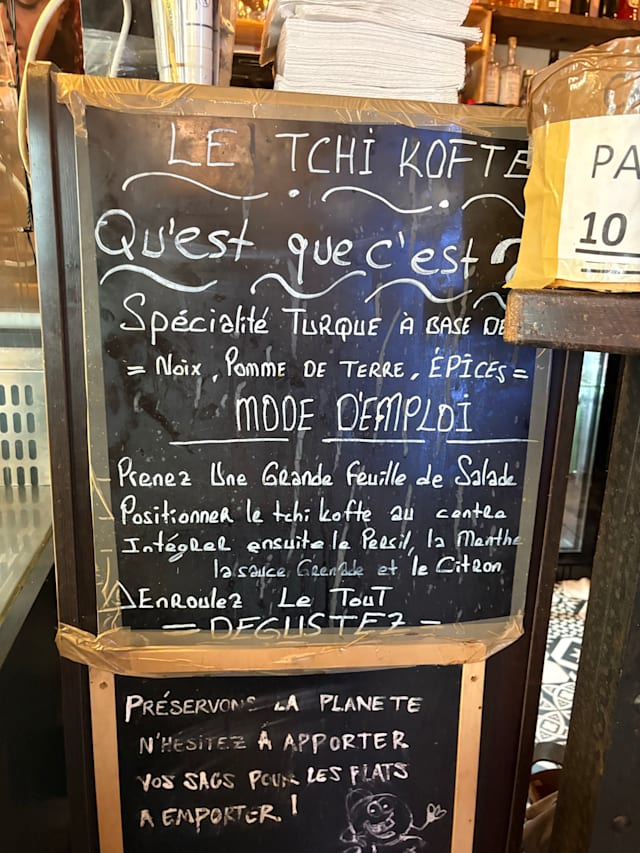 LE TCHI KOFTE
Qu'est que c'est ?
Spécialité TURQUE À BASE DE
= Noix, Pomme DE TERRE, ÉPICES =
MODE D'EMPLOI
Prenez Une Grande feuille de Salade
Positionner le tchi kofte au centre
Intégrer ensuite le Persil, la Menthe
la sauce Grenade et le Citron
ENROULEZ LE TOUT
— DEGUSTEZ —
PRÉSERVONS LA PLANETE
N'HESITEZ A APPORTER
VOS SACS POUR LES PLATS
A EMPORTER !
PA
10